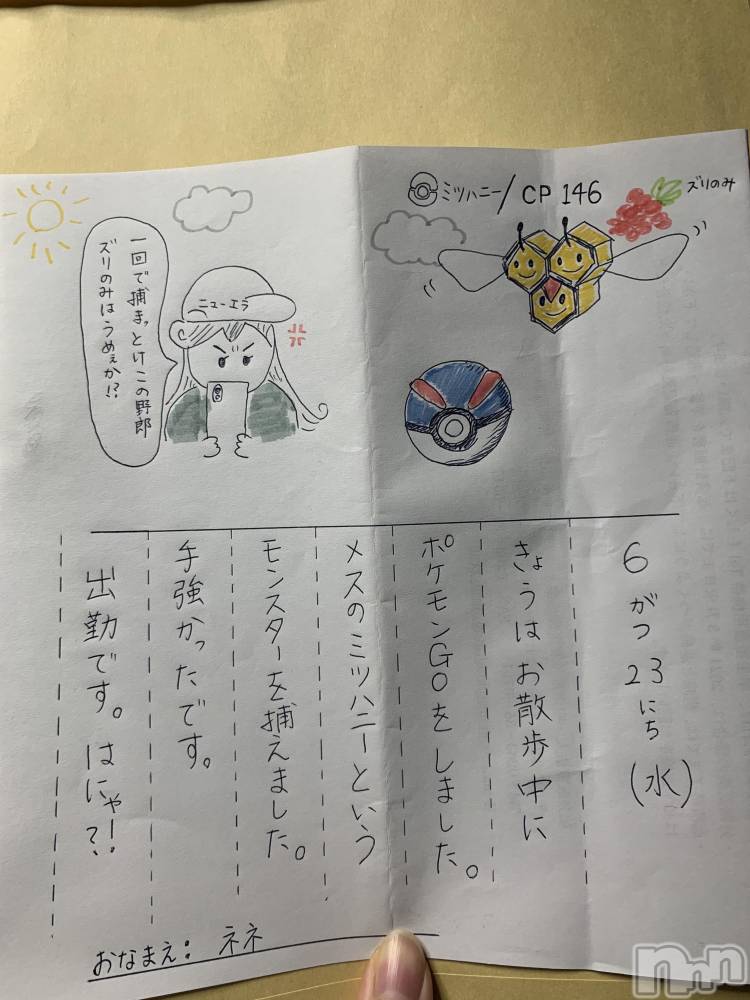 ミツハニー/CP 146
ズリのみ
一回で捕まっとけこの野郎
ズリのみはうめぇか!?
ニューエラ
6がつ23にち(水)
きょうはお散歩中に
ポケモンGOをしました。
メスのミツハニーという
モンスターを捕えました。
手強かったです。
出勤です。はにゃ!?
おなまえ: ネネ
nnn